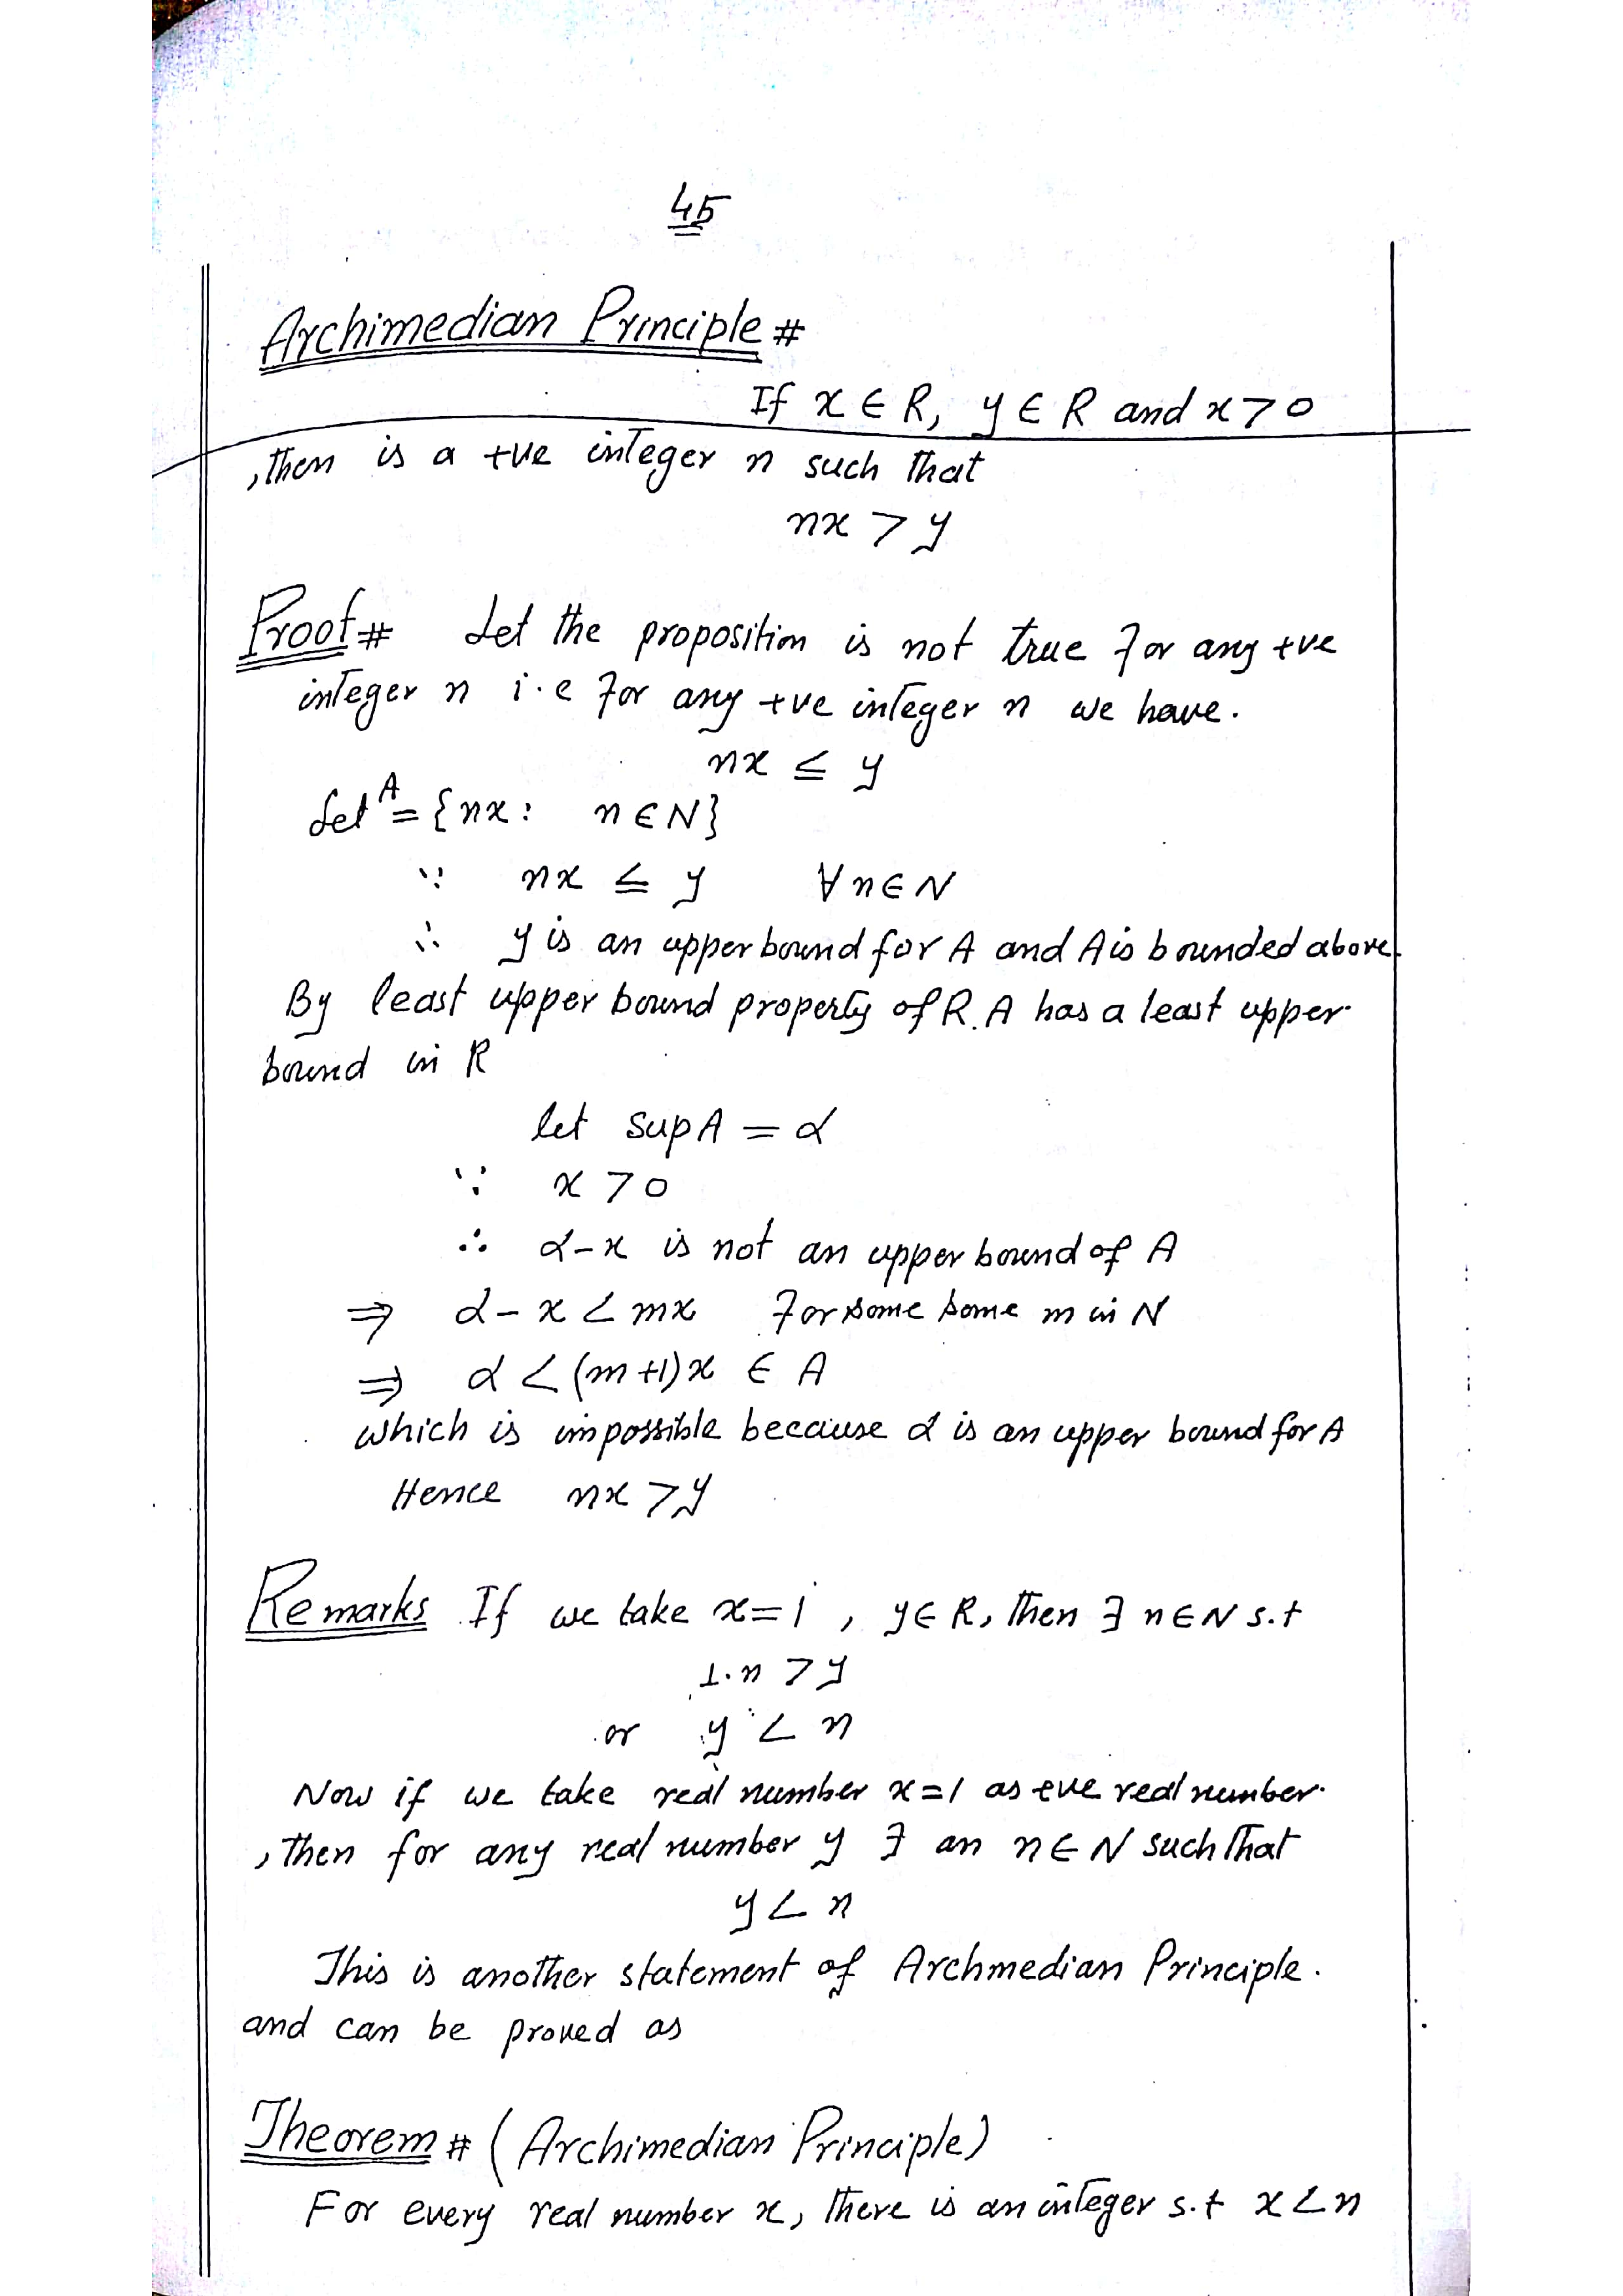 45
Archimedian Principle #
If x ∈ R, y ∈ R and x > 0
, then is a +ve integer n such that
nx > y
Proof # Let the proposition is not true for any +ve
integer n i.e for any +ve integer n we have.
nx ≤ y
Let A = {nx : n ∈ N}
∵ nx ≤ y ∀ n ∈ N
∴ y is an upper bound for A and A is bounded above.
By least upper bound property of R. A has a least upper
bound in R
let sup A = α
∵ x > 0
∴ α - x is not an upper bound of A
⇒ α - x < mx for some some m in N
⇒ α < (m+1)x ∈ A
which is impossible because α is an upper bound for A
Hence nx > y
Remarks If we take x = 1, y ∈ R, then ∃ n ∈ N s.t
1.n > y
or y < n
Now if we take real number x = 1 as +ve real number
, then for any real number y ∃ an n ∈ N such that
y < n
This is another statement of Archmedian Principle.
and can be proved as
Theorem # (Archimedian Principle)
For every real number x, there is an integer s.t x < n